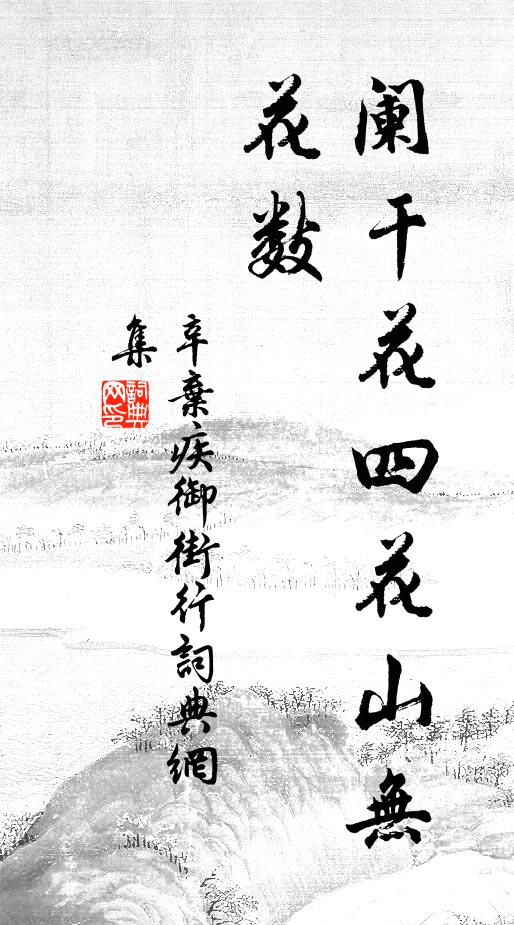 阑干花四花山無
花数
辛棄疾御街行詞典網
集
詞典
网印